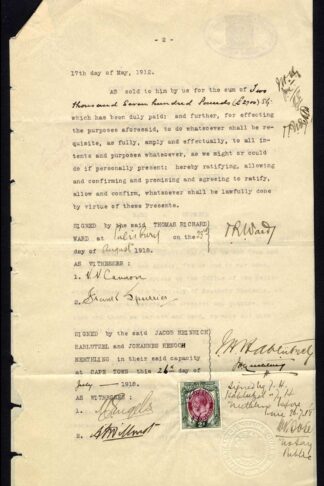 - 2 -
17th day of May, 1912.
AS sold to him by us for the sum of Two
thousand Seven hundred Pounds (£2700) Stg:
which has been duly paid: and further, for effecting
the purposes aforesaid, to do whatsoever shall be re-
quisite, as fully, amply and effectually, to all in-
tents and purposes whatsoever, as we might or could
do if personally present: hereby ratifying, allowing
and confirming and promising and agreeing to ratify,
allow and confirm, whatsoever shall be lawfully done
by virtue of these Presents.
SIGNED by the said THOMAS RICHARD
WARD at Salisbury on the 23rd
day of August 1918.
T R Ward
AS WITNESSES :
1. H H Cannon
2. Frank
SIGNED by the said JACOB HEINRICH
HABLUTZEL and JOHANNES HENOCH
NEETHLING in their said capacity
at CAPE TOWN this 26th day of
July 1918.
J H Hablutzel
AS WITNESSES :
1.
2.
Signed by J. H.
Hablutzel & J H
Neethling before
me 26.7.18
Notary
Public